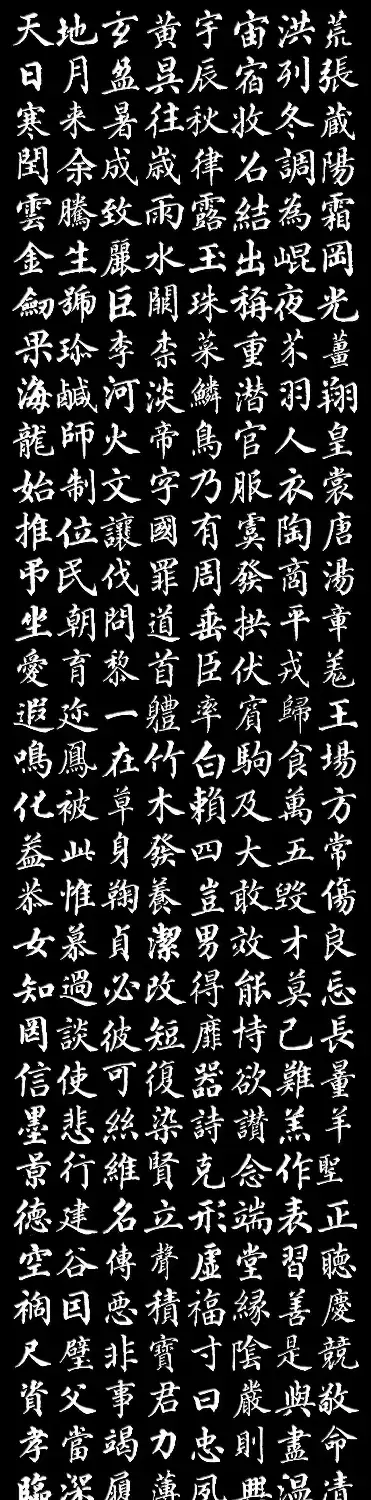 天地玄黄宇宙洪荒
日月盈昃辰宿列張
寒来暑往秋收冬蔵
閏余成歳律吕調陽
雲騰致雨露結為霜
金生麗水玉出崐岡
劒號巨闕珠稱夜光
果珎李柰菜重芥薑
海鹹河淡鱗潜羽翔
龍師火帝鳥官人皇
始制文字乃服衣裳
推位讓國有虞陶唐
弔民伐罪周發商湯
坐朝問道垂拱平章
愛育黎首臣伏戎羌
遐迩一軆率賓歸王
鳴鳳在竹白駒食場
化被草木賴及萬方
盖此身髮四大五常
恭惟鞠養豈敢毀傷
女慕貞潔男效才良
知過必改得能莫忘
罔談彼短靡恃己長
信使可復器欲難量
墨悲絲染詩讃羔羊
景行維賢克念作聖
徳建名立形端表正
空谷傳聲虚堂習聴
禍因惡積福縁善慶
尺璧非寶寸陰是競
資父事君曰嚴與敬
孝當竭力忠則盡命
臨深履薄夙興温凊